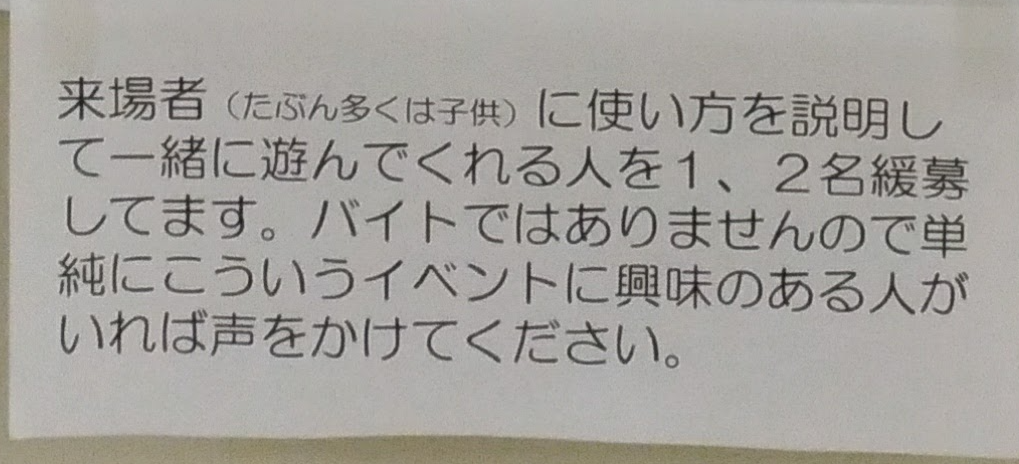 来場者（たぶん多くは子供）に使い方を説明し
て一緒に遊んでくれる人を１、２名緩募
してます。バイトではありませんので単
純にこういうイベントに興味のある人が
いれば声をかけてください。